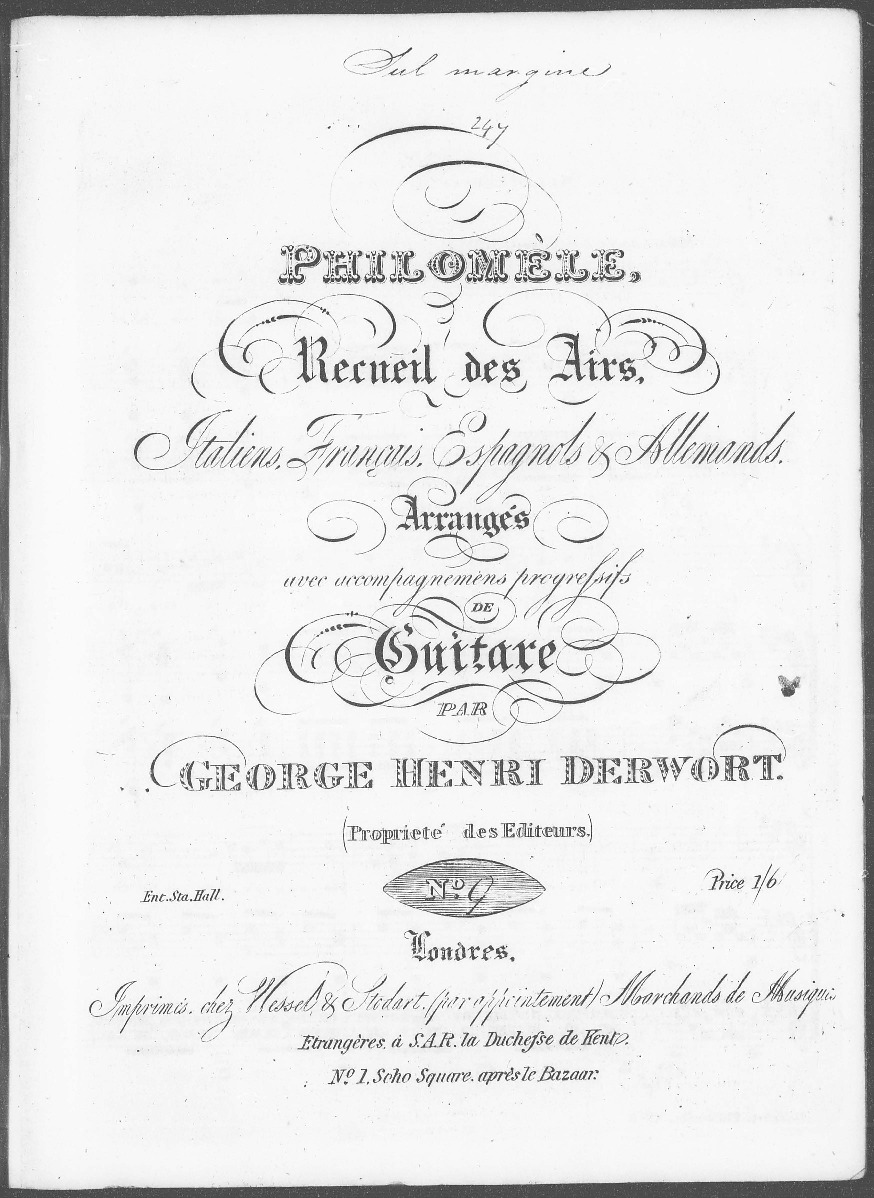 Sul margine
247
PHILOMÈLE,
Recueil des Airs,
Italiens, Français, Espagnols & Allemands.
Arrangés
avec accompagnemens progreſsifs
DE
Guitare
PAR
GEORGE HENRI DERWORT.
(Proprieté des Editeurs.)
Ent. Sta. Hall.
Nº. 9
Price 1/6
Londres,
Imprimés, chez Wessel, & Stodart, (par appointement) Marchands de Musiques
Etrangères, à S.A.R. la Ducheſse de Kent.
Nº 1, Soho Square, après le Bazaar.